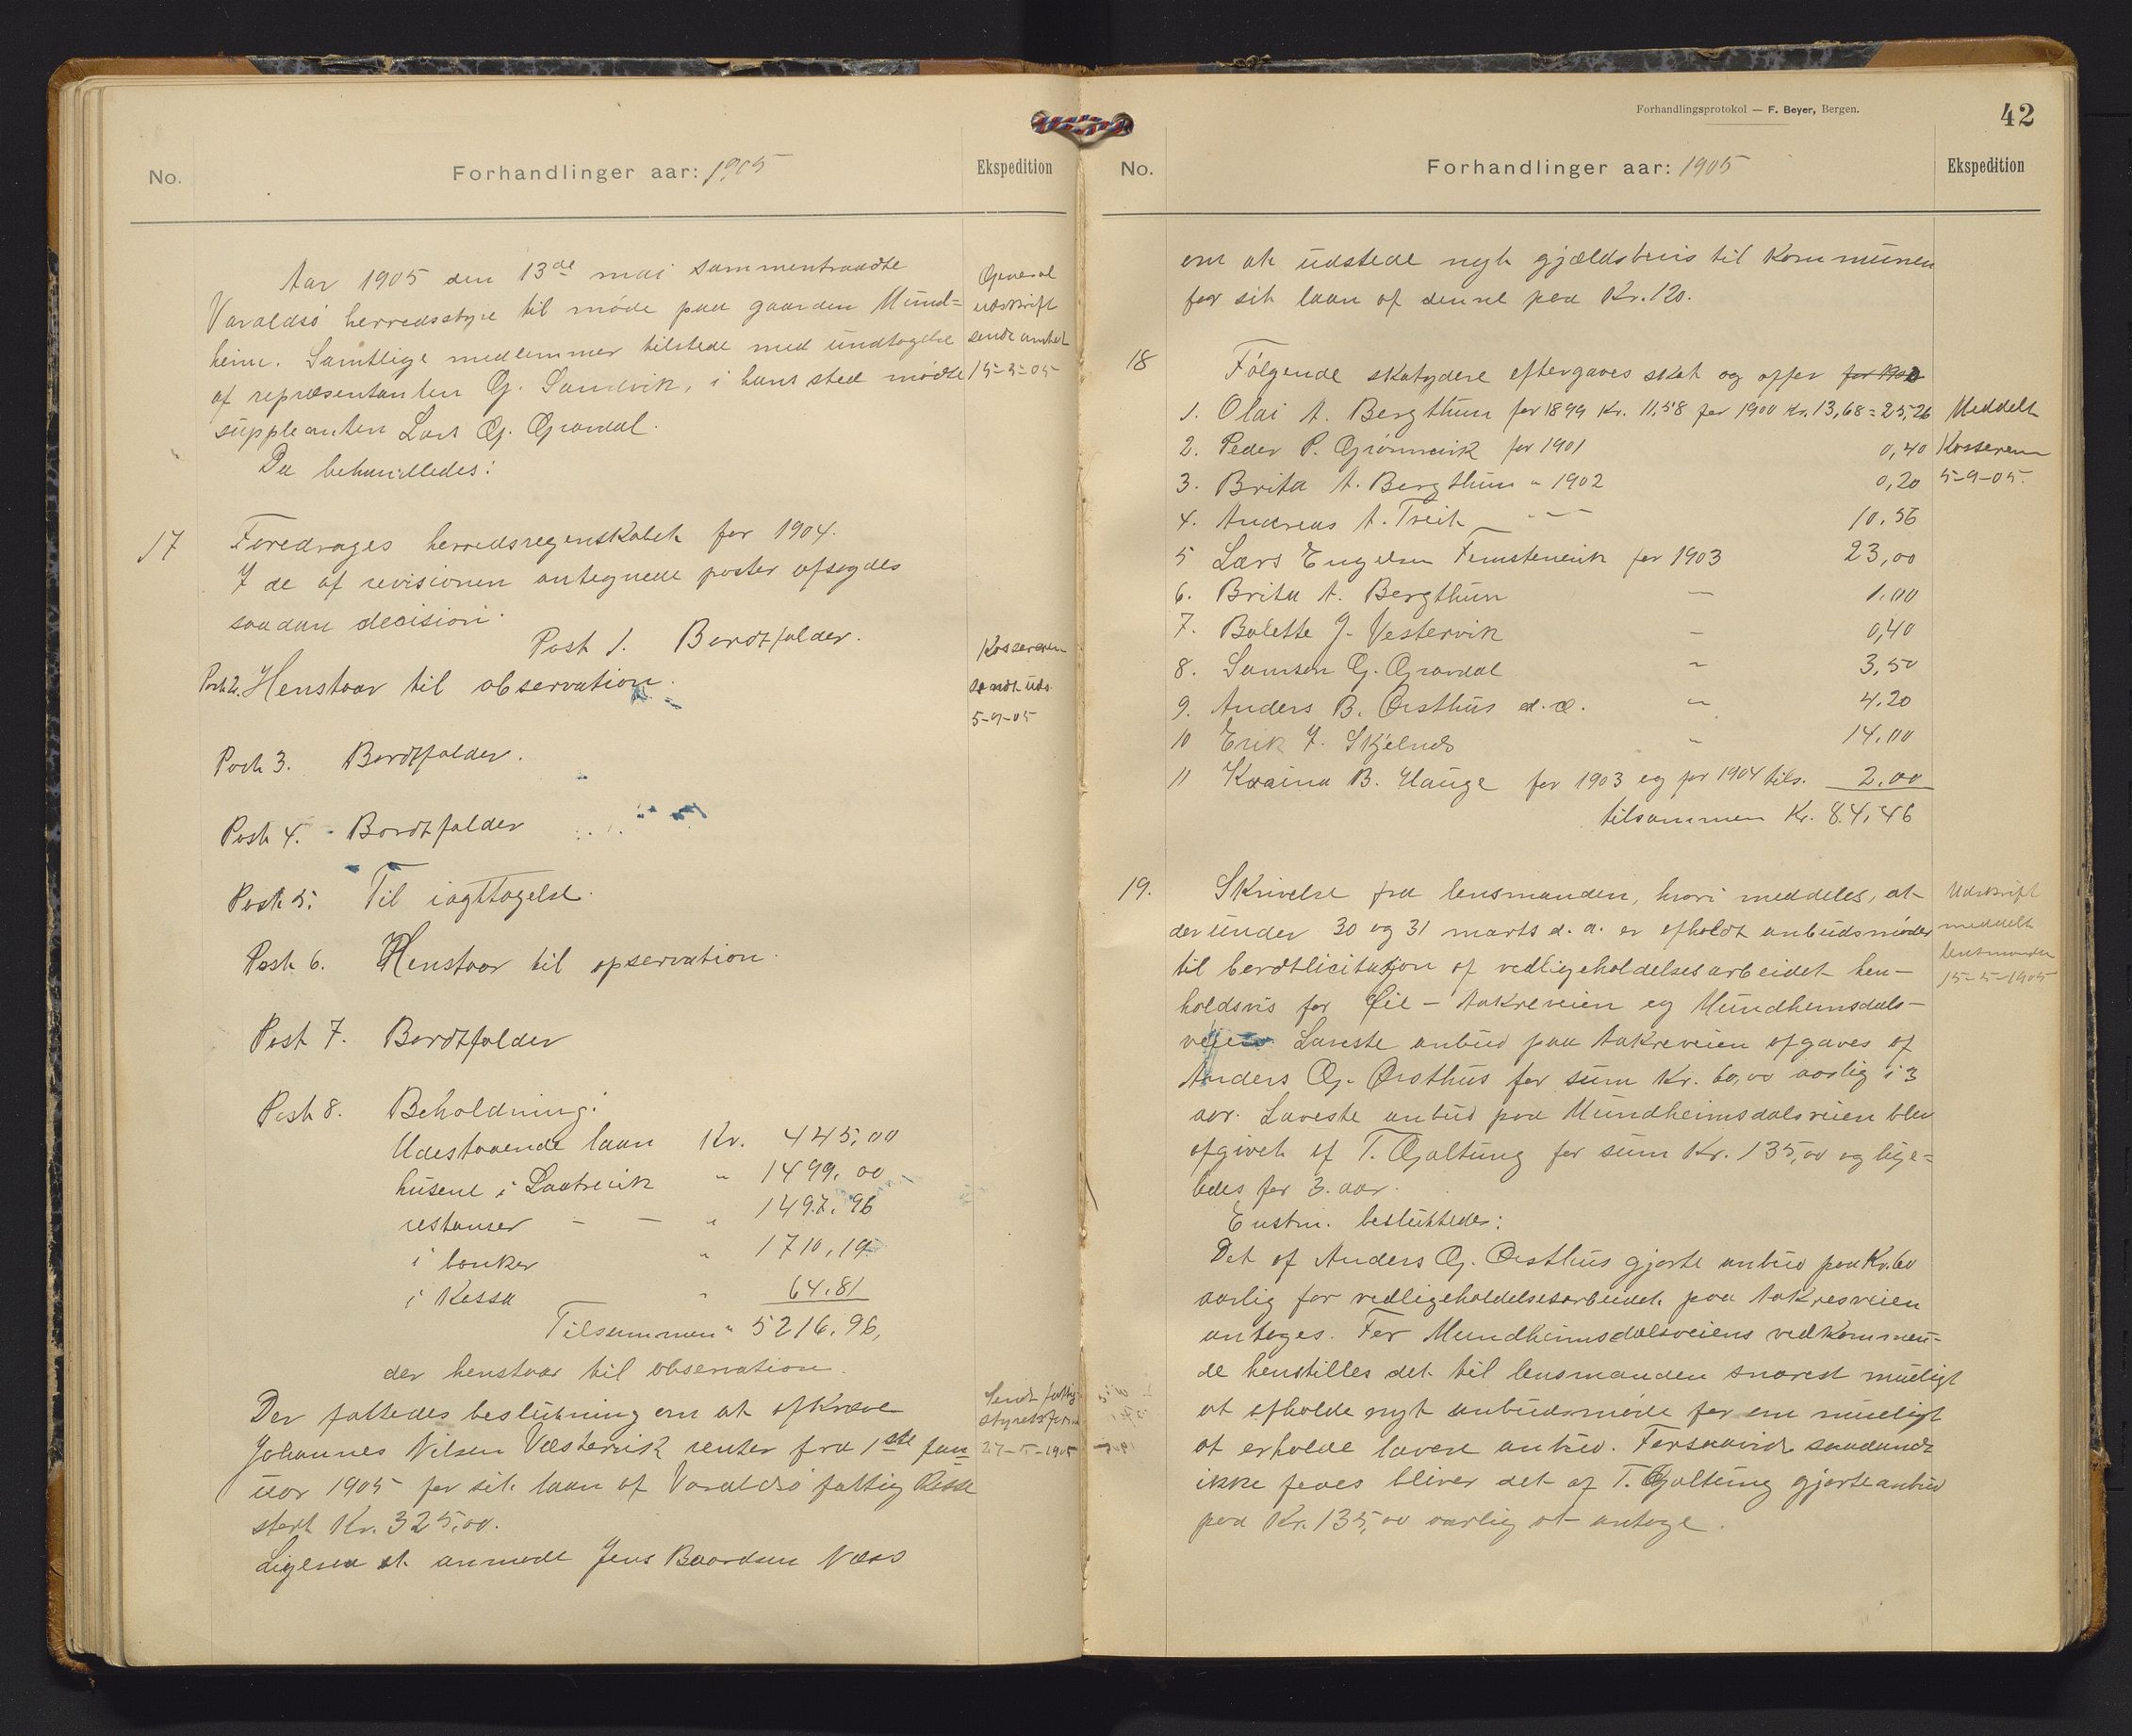 No.
Forhandlinger aar: 1905
Ekspedition
Aar 1905 den 13de mai sammentraadte
Varaldsö herredsstyre til möde paa gaarden Mund=
heim. Samtlige medlemmer tilstede med undtagelse
af repræsentanten G. Sandvik, i hans sted mödte
suppleanten Lars G. Gravdal.
Da behandledes:
General
udskrift
sendt amtet
15-5-05
17
Foredrages herredsregenskabet for 1904.
I de af revisionen antegnede poster afsagdes
saadan decision:
Post 1. Bortfalder.
Post 2. Henstaar til observation.
Kassereren
sendt uds.
5-9-05
Post 3. Bortfalder.
Post 4. Bortfalder
Post 5. Til iagttagelse.
Post 6. Henstaar til opservation.
Post 7. Bortfalder
Post 8. Beholdning:
Udestaaende laan Kr. 445,00
husene i Laatrevik " 1499,00
restanser - - " 1497,96
i banker " 1710,19
i Kassa " 64.81
Tilsammen " 5216,96,
der henstaar til observation.
Der fattedes beslutning om at afkræve
Johannes Nilsen Væstervik renter fra 1ste jan=
uar 1905 for sit laan af Varaldsö fattig kasse
stort Kr. 325,00.
Ligesaa at anmode Jens Baardsen Næss
Sendt fattig
styrets form
27-5-1905
Forhandlingsprotokol — F. Beyer, Bergen.
42
No.
Forhandlinger aar: 1905
Ekspedition
om at udstede nyt gjældsbevis til Kommunen
for sit laan af denne paa Kr. 120.
18
Fölgende skatydere eftergaves skat og opfer for 1902
1. Olai A. Bergthun for 1899 Kr. 11,58 for 1900 Kr. 13,68 = 25,26
2. Peder P. Grönnevik for 1901 0,40
3. Brita A. Bergthun " 1902 0,20
4. Andreas A. Treit - " - 10,56
5 Lars Engelsen Femstenevik for 1903 23,00
6. Brita A. Bergthun — 1.00
7. Balette J. Vestervik — 0,40
8. Samson G. Gravdal " 3,50
9. Anders B. Örsthus d. æ. " 4.20
10 Erik J. Skjelnes " 14.00
11 Kraina B. Hauge for 1903 og for 1904 tils. 2.00
tilsammen Kr. 84,46
Meddelt
Kassereren
5-9-05.
19.
Skrivelse fra lensmanden, hvori meddeles, at
der under 30 og 31 marts d. a. er afholdt anbudsmöder
til bortlicitasjon af vedligeholdelsesarbeidet hen-
holdsvis for Öie - Aakreveien og Mundheimsdals-
veien. Laveste anbud paa Aakreveien afgaves af
Anders G. Örsthus for sum Kr. 60,00 aarlig i 3
aar. Laveste anbud paa Mundheimsdalsveien blev
afgivet af T. Galtung for sum Kr. 135,00 og lige=
ledes for 3. aar.
Enstm. besluttedes:
Det af Anders G. Örsthus gjorte anbud paa Kr. 60
aarlig for vedligeholdelsesarbeidet paa Aakresveien
antages. For Mundheimsdalsveiens vedkommen-
de henstilles det til lensmanden snarest muligt
at afholde nyt anbudsmöde for om muligt
at erholde lavere anbud. Forsaavidt saadandt
ikke faaes bliver det af T. Galtung gjorte anbud
paa Kr. 135,00 aarlig at antage.
Udskrift
meddelt
lensmanden
15-5-1905